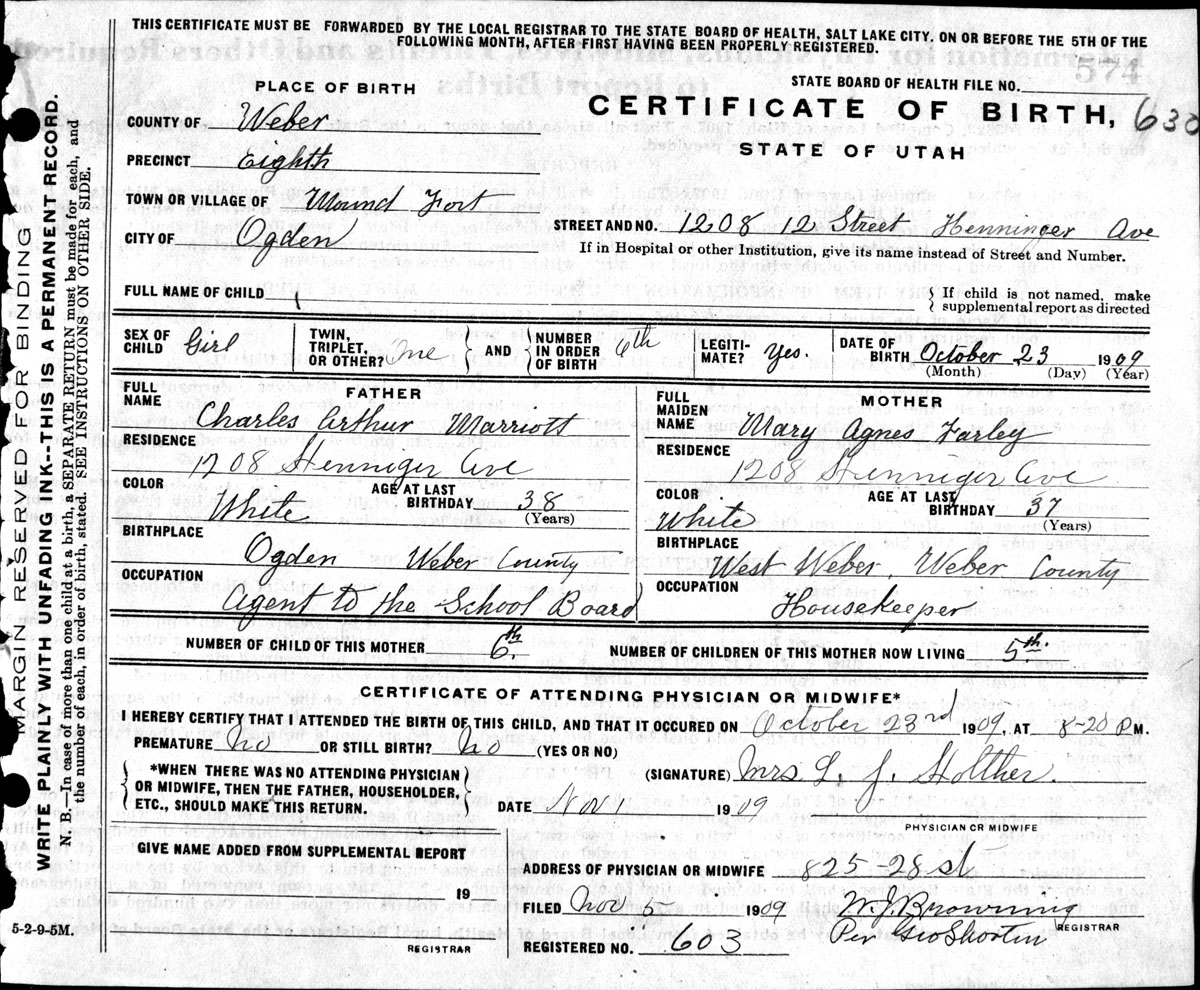 THIS CERTIFICATE MUST BE FORWARDED BY THE LOCAL REGISTRAR TO THE STATE BOARD OF HEALTH, SALT LAKE CITY. ON OR BEFORE THE 5TH OF THE
FOLLOWING MONTH, AFTER FIRST HAVING BEEN PROPERLY REGISTERED.
574
STATE BOARD OF HEALTH FILE NO.
PLACE OF BIRTH
CERTIFICATE OF BIRTH, 630
STATE OF UTAH
COUNTY OF Weber
PRECINCT Eighth
TOWN OR VILLAGE OF Mound Fort
CITY OF Ogden
STREET AND NO. 1208 12 Street Henninger Ave
If in Hospital or other Institution, give its name instead of Street and Number.
FULL NAME OF CHILD
If child is not named, make
supplemental report as directed
SEX OF CHILD Girl TWIN, TRIPLET, OR OTHER? One AND NUMBER IN ORDER OF BIRTH 6th LEGITI-MATE? Yes. DATE OF BIRTH October 23 1909
(Month) (Day) (Year)
FULL NAME FATHER
Charles Arthur Marriott
RESIDENCE
1208 Henniger Ave
COLOR White AGE AT LAST BIRTHDAY 38 (Years)
BIRTHPLACE
Ogden Weber County
OCCUPATION
Agent to the School Board
FULL MAIDEN NAME MOTHER
Mary Agnes Farley
RESIDENCE
1208 Henniger Ave
COLOR White AGE AT LAST BIRTHDAY 37 (Years)
BIRTHPLACE
West Weber, Weber County
OCCUPATION
Housekeeper
NUMBER OF CHILD OF THIS MOTHER 6th. NUMBER OF CHILDREN OF THIS MOTHER NOW LIVING 5th.
CERTIFICATE OF ATTENDING PHYSICIAN OR MIDWIFE*
I HEREBY CERTIFY THAT I ATTENDED THE BIRTH OF THIS CHILD, AND THAT IT OCCURED ON October 23rd 1909, AT 8-20 P M.
PREMATURE No OR STILL BIRTH? No (YES OR NO)
*WHEN THERE WAS NO ATTENDING PHYSICIAN
OR MIDWIFE, THEN THE FATHER, HOUSEHOLDER,
ETC., SHOULD MAKE THIS RETURN.
(SIGNATURE) Mrs L. J. Holther.
DATE Nov 1909
PHYSICIAN OR MIDWIFE
GIVE NAME ADDED FROM SUPPLEMENTAL REPORT
19
REGISTRAR
ADDRESS OF PHYSICIAN OR MIDWIFE 825-28 st
FILED Nov 5 1909 W. J. Browning
Per Geo Shorten REGISTRAR
REGISTERED NO. 603
5-2-9-5M.
MARGIN RESERVED FOR BINDING
WRITE PLAINLY WITH UNFADING INK--THIS IS A PERMANENT RECORD.
N. B.—In case of more than one child at a birth, a SEPARATE RETURN must be made for each, and
the number of each, in order of birth, stated. SEE INSTRUCTIONS ON OTHER SIDE.